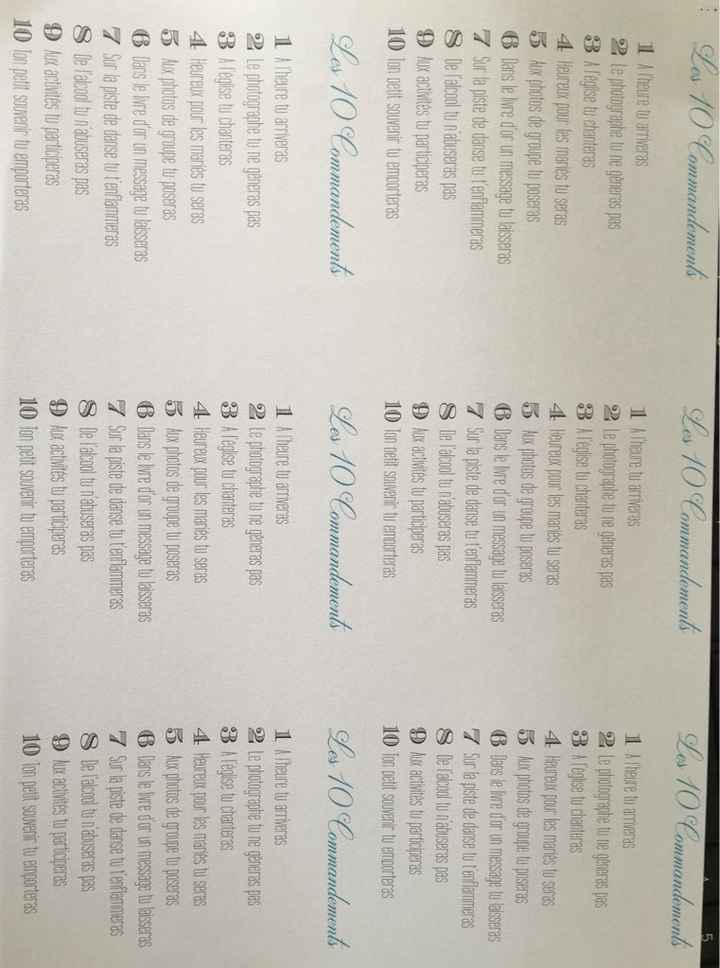 5
Les 10 Commandements
1 A l'heure tu arriveras
2 Le photographe tu ne gêneras pas
3 A l'église tu chanteras
4 Heureux pour les mariés tu seras
5 Aux photos de groupe tu poseras
6 Dans le livre d'or un message tu laisseras
7 Sur la piste de danse tu t'enflammeras
8 De l'alcool tu n'abuseras pas
9 Aux activités tu participeras
10 Ton petit souvenir tu emporteras
Les 10 Commandements
1 A l'heure tu arriveras
2 Le photographe tu ne gêneras pas
3 A l'église tu chanteras
4 Heureux pour les mariés tu seras
5 Aux photos de groupe tu poseras
6 Dans le livre d'or un message tu laisseras
7 Sur la piste de danse tu t'enflammeras
8 De l'alcool tu n'abuseras pas
9 Aux activités tu participeras
10 Ton petit souvenir tu emporteras
Les 10 Commandements
1 A l'heure tu arriveras
2 Le photographe tu ne gêneras pas
3 A l'église tu chanteras
4 Heureux pour les mariés tu seras
5 Aux photos de groupe tu poseras
6 Dans le livre d'or un message tu laisseras
7 Sur la piste de danse tu t'enflammeras
8 De l'alcool tu n'abuseras pas
9 Aux activités tu participeras
10 Ton petit souvenir tu emporteras
Les 10 Commandements
1 A l'heure tu arriveras
2 Le photographe tu ne gêneras pas
3 A l'église tu chanteras
4 Heureux pour les mariés tu seras
5 Aux photos de groupe tu poseras
6 Dans le livre d'or un message tu laisseras
7 Sur la piste de danse tu t'enflammeras
8 De l'alcool tu n'abuseras pas
9 Aux activités tu participeras
10 Ton petit souvenir tu emporteras
Les 10 Commandements
1 A l'heure tu arriveras
2 Le photographe tu ne gêneras pas
3 A l'église tu chanteras
4 Heureux pour les mariés tu seras
5 Aux photos de groupe tu poseras
6 Dans le livre d'or un message tu laisseras
7 Sur la piste de danse tu t'enflammeras
8 De l'alcool tu n'abuseras pas
9 Aux activités tu participeras
10 Ton petit souvenir tu emporteras
Les 10 Commandements
1 A l'heure tu arriveras
2 Le photographe tu ne gêneras pas
3 A l'église tu chanteras
4 Heureux pour les mariés tu seras
5 Aux photos de groupe tu poseras
6 Dans le livre d'or un message tu laisseras
7 Sur la piste de danse tu t'enflammeras
8 De l'alcool tu n'abuseras pas
9 Aux activités tu participeras
10 Ton petit souvenir tu emporteras